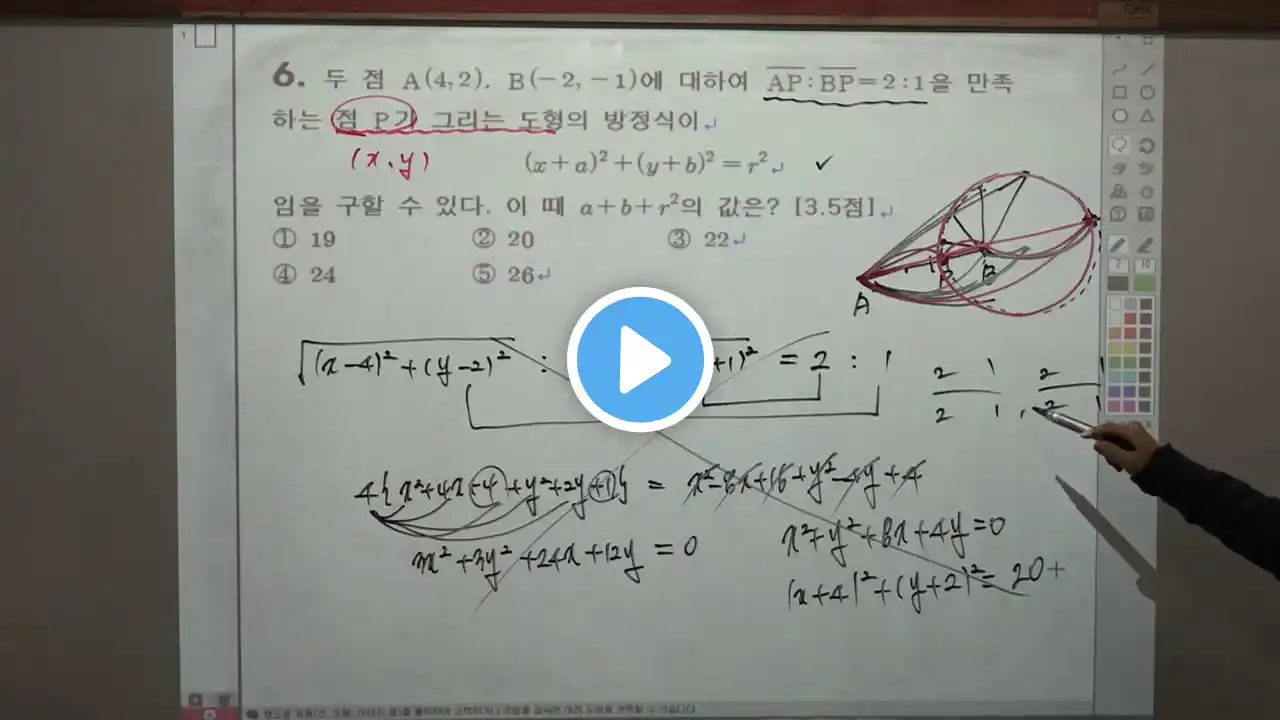 6. 두 점 A(4, 2), B(−2, −1)에 대하여 AP : BP = 2 : 1을 만족
하는 점 P가 그리는 도형의 방정식이
(x, y)
(x+a)²+(y+b)²=r² ✓
임을 구할 수 있다. 이 때 a+b+r²의 값은? [3.5점]
① 19 ② 20 ③ 22
④ 24 ⑤ 26
A
B
√(x-4)²+(y-2)² : +1)² = 2 : 1
2 1 2 1
2 1 , 2 1
4{x²+4x+4+y²+2y+1} = x²-8x+16+y²-4y+4
3x²+3y²+24x+12y=0
x²+y²+8x+4y=0
(x+4)²+(y+2)²=20